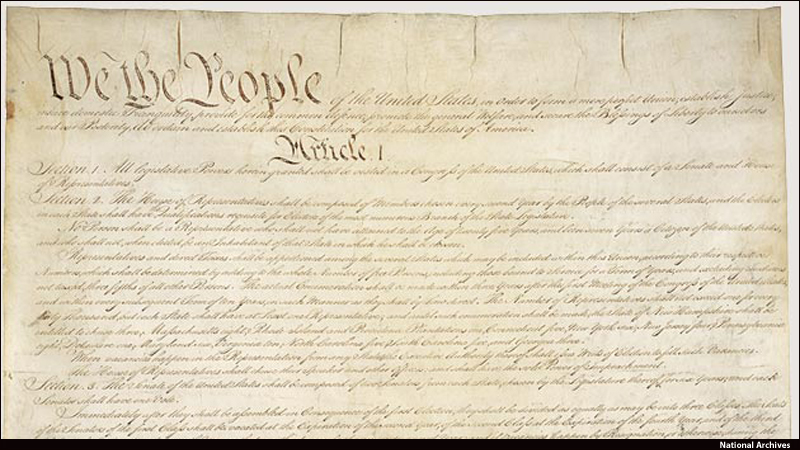 We the People of the United States, in Order to form a more perfect Union, establish Justice,
insure domestic Tranquility, provide for the common defence, promote the general Welfare, and secure the Blessings of Liberty to ourselves
and our Posterity, do ordain and establish this Constitution for the United States of America.
Article. I.
Section. 1. All legislative Powers herein granted shall be vested in a Congress of the United States, which shall consist of a Senate and House
of Representatives.
Section. 2. The House of Representatives shall be composed of Members chosen every second Year by the People of the several States, and the Electors
in each State shall have Qualifications requisite for Electors of the most numerous Branch of the State Legislature.
No Person shall be a Representative who shall not have attained to the Age of twenty five Years, and been seven Years a Citizen of the United States,
and who shall not, when elected, be an Inhabitant of that State in which he shall be chosen.
Representatives and direct Taxes shall be apportioned among the several States which may be included within this Union, according to their respective
Numbers, which shall be determined by adding to the whole Number of free Persons, including those bound to Service for a Term of Years, and excluding Indians
not taxed, three fifths of all other Persons. The actual Enumeration shall be made within three Years after the first Meeting of the Congress of the United States,
and within every subsequent Term of ten Years, in such Manner as they shall by Law direct. The Number of Representatives shall not exceed one for every
thirty Thousand, but each State shall have at Least one Representative; and until such enumeration shall be made, the State of New Hampshire shall be
entitled to chuse three, Massachusetts eight, Rhode-Island and Providence Plantations one, Connecticut five, New-York six, New Jersey four, Pennsylvania
eight, Delaware one, Maryland six, Virginia ten, North Carolina five, South Carolina five, and Georgia three.
When vacancies happen in the Representation from any State, the Executive Authority thereof shall issue Writs of Election to fill such Vacancies.
The House of Representatives shall chuse their Speaker and other Officers; and shall have the sole Power of Impeachment.
Section. 3. The Senate of the United States shall be composed of two Senators from each State, chosen by the Legislature thereof, for six Years; and each
Senator shall have one Vote.
Immediately after they shall be assembled in Consequence of the first Election, they shall be divided as equally as may be into three Classes. The Seats
of the Senators of the first Class shall be vacated at the Expiration of the second Year, of the second Class at the Expiration of the fourth Year, and of the third
National Archives